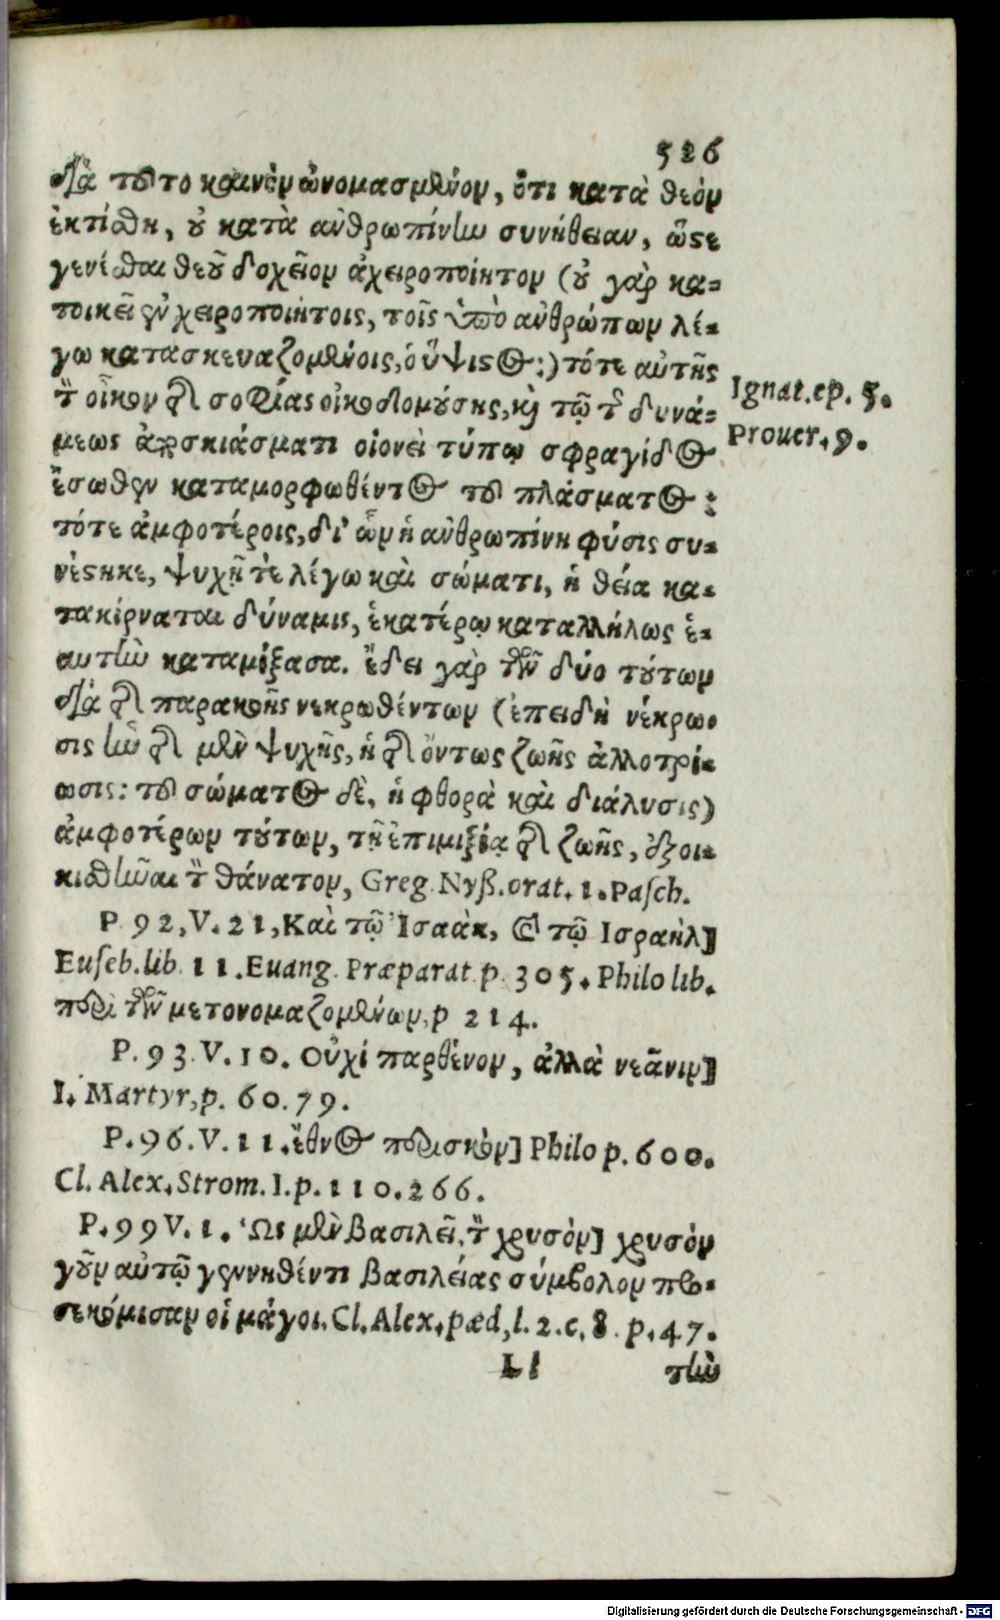 526
διὰ τοῦτο καινὸν ὠνομασμένον, ὅτι κατὰ θεὸν
ἐκτίσθη, οὐ κατὰ ἀνθρωπίνην συνήθειαν, ὥστε
γενέσθαι θεοῦ δοχεῖον ἀχειροποίητον (οὐ γὰρ κα-
τοικεῖ ἐν χειροποιήτοις, τοῖς ὑπὸ ἀνθρώπων λέ-
γω κατασκευαζομένοις, ὁ ὕψιστος:) τότε αὐτῆς
Ignat. ep. 5.
τὸν οἶκον τῆς σοφίας οἰκοδομούσης, καὶ τῷ τῆς δυνά-
Prouer. 9.
μεως ἀποσκιάσματι οἱονεὶ τύπῳ σφραγίδος
ἔσωθεν καταμορφωθέντος τοῦ πλάσματος:
τότε ἀμφοτέροις, δι' ὧν ἡ ἀνθρωπίνη φύσις συ-
νέστηκε, ψυχῇ τὲ λέγω καὶ σώματι, ἡ θεία κα-
τακίρναται δύναμις, ἑκατέρῳ καταλλήλως ἑ-
αυτὴν καταμίξασα. ἔδει γὰρ τῶν δύο τούτων
διὰ τῆς παρακοῆς νεκρωθέντων (ἐπειδὴ νέκρω-
σις ἦν τῆς μὲν ψυχῆς, ἡ τῆς ὄντως ζωῆς ἀλλοτρί-
ωσις: τοῦ σώματος δὲ, ἡ φθορὰ καὶ διάλυσις)
ἀμφοτέρων τούτων, τῇ ἐπιμιξίᾳ τῆς ζωῆς, ἐξοι-
κισθῆναι τὸν θάνατον, Greg. Nyß. orat. 1. Pasch.
P. 92, V. 21, Καὶ τῷ Ἰσαὰκ, καὶ τῷ Ισραὴλ]
Euseb. lib. 11. Euang. Præparat. p. 305. Philo lib.
περὶ τῶν μετονομαζομένων, p 214.
P. 93. V. 10. Οὐχὶ παρθένον, ἀλλὰ νεᾶνιν]
I. Martyr, p. 60. 79.
P. 96. V. 11. ἔθνος περισκὸν] Philo p. 600.
Cl. Alex. Strom. I. p. 110. 266.
P. 99 V. 1. Ὡς μὲν βασιλεῖ, τὸν χρυσὸν] χρυσὸν
γοῦν αὐτῷ γεννηθέντι βασιλείας σύμβολον προ-
σεκόμισαν οἱ μάγοι. Cl. Alex. pæd, l. 2. c. 8. p. 47.
Ll
τὴν
Digitalisierung gefördert durch die Deutsche Forschungsgemeinschaft - DFG